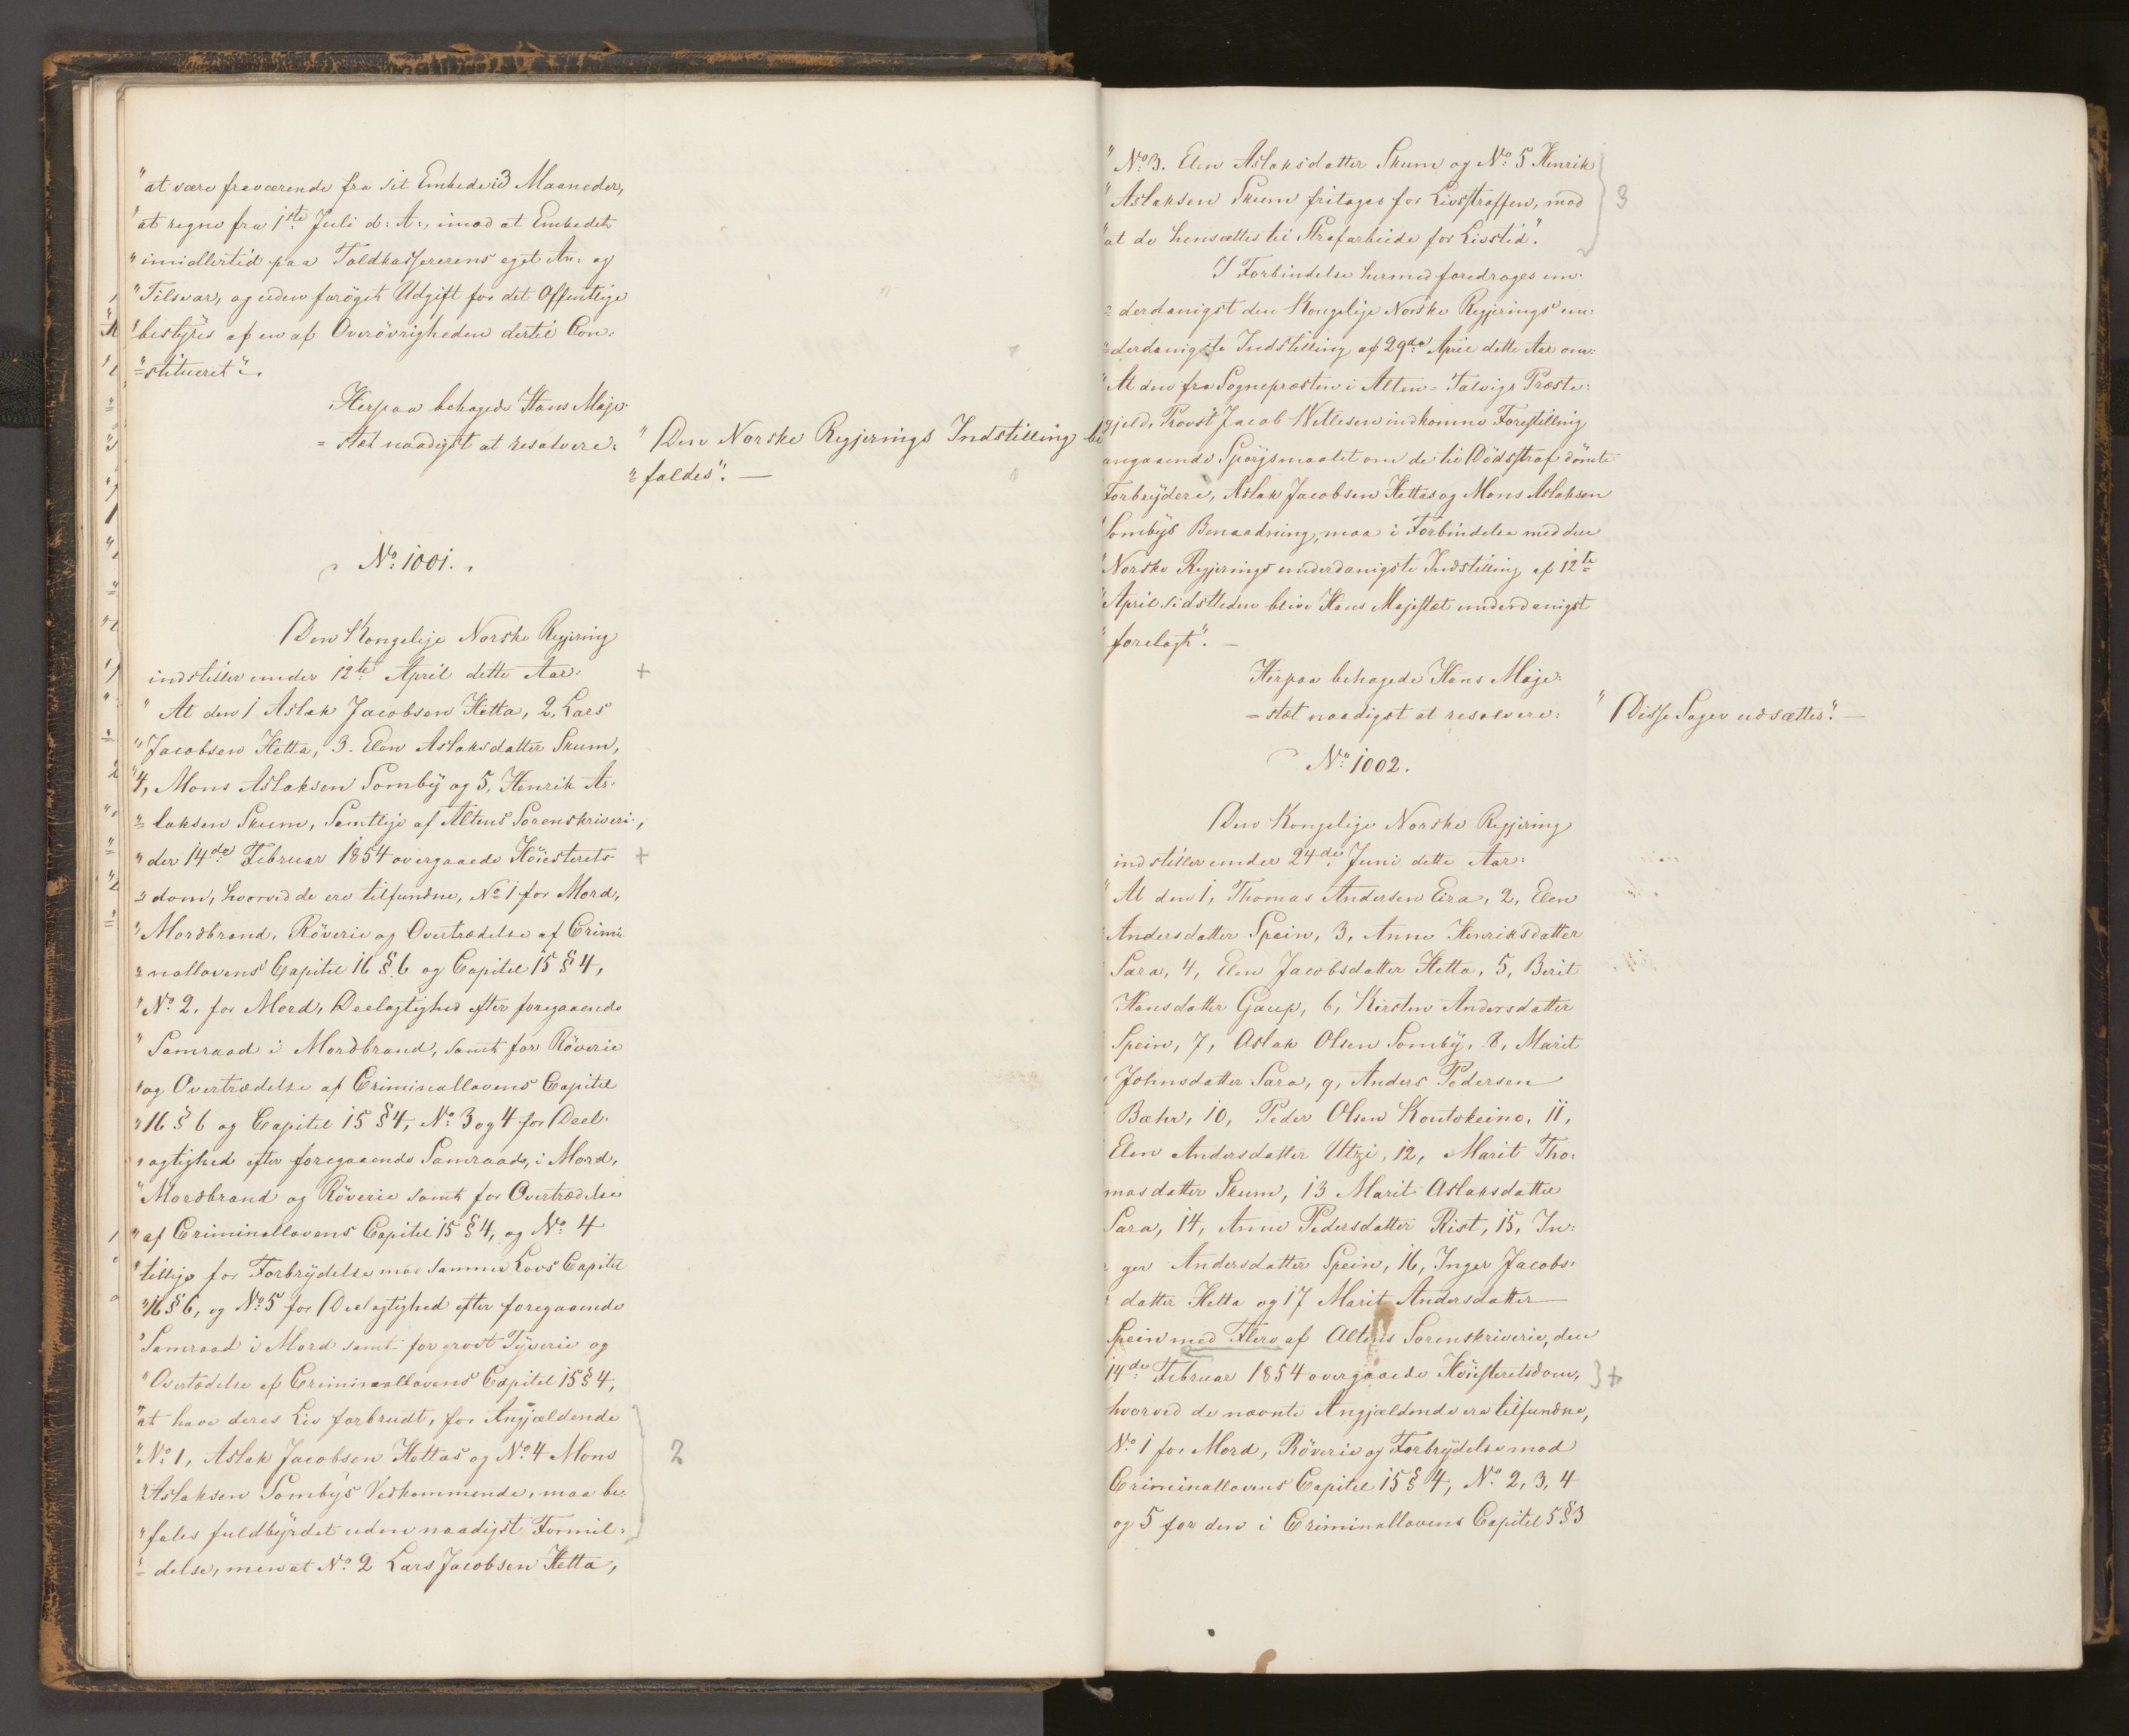 "at være fraværende fra sit Embede i 3 Maaneder,
"at regne fra 1ste Juli d: A:, imod at Embedet
"imidlertid paa Toldkassererens eget An= og
"Tilsvar, og uden forøget Udgift for det Offentlige
"bestyres af en af Overøvrigheden dertil Con=
"=stitueret".
Herpaa behagede Hans Maje=
=stæt naadigst at resolvere:
"Den Norske Regjerings Indstilling bi=
"=faldes". —
No 1001.
Den Kongelige Norske Regjering
indstiller under 12te April dette Aar: +
"At den 1 Aslak Jacobsen Hetta, 2, Lars
"Jacobsen Hetta, 3. Elen Aslaksdatter Skum,
"4, Mons Aslaksen Somby og 5, Henrik As=
"=laksen Skum, Samtlige af Altens Sorenskriveri,
"der 14de Februar 1854 overgaaede Høiesterets= +
"=dom, hvorved de ere tilfundne, No 1 for Mord,
"Mordbrand, Röverie og Overtrædelse af Crimi=
"=nallovens Capitel 16 § 6 og Capitel 15 § 4,
"No 2. for Mord, Deelagtighed efter foregaaende
"Samraad i Mordbrand, samt for Röverie
"og Overtrædelse af Criminallovens Capitel
"16 § 6 og Capitel 15 § 4, No 3 og 4 for Deel=
"agtighed efter foregaaende Samraad, i Mord,
"Mordbrand og Röverie samt for Overtrædelse
"af Criminallovens Capitel 15 § 4, og No 4
"tillige for Forbrydelse mod samme Lovs Capitel
"16 § 6, og No 5 for Deelagtighed efter foregaaende
"Samraad i Mord samt for grovt Tyverie og
"Overtædelse af Criminallovens Capitel 15 § 4,
"at have deres Liv forbrudt, for Angjældende
"No 1, Aslak Jacobsen Hettas og No 4 Mons 2
"Aslaksen Sombys Vedkommende, maa be=
"fales fuldbyrdet uden naadigst Formil=
"=delse, men at No 2 Lars Jacobsen Hetta,
"No 3. Elen Aslaksdatter Skum og No 5 Henrik
"Aslaksen Skum fritages for Livsstraffen, mod 3
"at de hensættes til Strafarbeide for Livstid".
I Forbindelse hermed foredrages un=
=derdanigst den Kongelige Norske Regjerings un=
=derdanigste Indstilling af 29de April dette Aar om:
"At den fra Sognepræsten i Alten-Talvigs Præste=
gjeld, Provst Jacob Wettesen indkomne Forestilling
angaaende Spørgsmaalet om de til Dødsstraf dømte
Forbrydere, Aslak Jacobsen Hettas og Mons Aslaksen
Sombys Benaadning, maa i Forbindelse med den
"Norske Regjerings underdanigste Indstilling af 12te
"April sidstleden blive Hans Majestæt underdanigst
"forelagt". —
Herpaa behagede Hans Maje=
=stæt naadigst at resolvere:
"Disse Sager udsættes". —
No 1002.
Den Kongelige Norske Regjering
indstiller under 24de Juni dette Aar:
"At den 1, Thomas Andersen Eira, 2, Elen
Andersdatter Spein, 3, Anne Henriksdatter
Sara, 4, Elen Jacobsdatter Hetta, 5, Berit
Hansdatter Gaup, 6, Kirsten Andersdatter
Spein, 7, Aslak Olsen Somby, 8, Marit
Johnsdatter Sara, 9, Anders Pedersen
Bæhr, 10, Peder Olsen Koutokeino, 11,
Elen Andersdatter Utzi, 12, Marit Tho=
masdatter Skum, 13 Marit Aslaksdatter
Sara, 14, Anne Pedersdatter Rist, 15, In=
ger Andersdatter Spein, 16, Inger Jacobs=
datter Hetta og 17 Marit Andersdatter
Spein med Flere af Altens Sorenskriverie, den
14de Februar 1854 overgaaede Høiesteretsdom, +
hvorved de nævnte Angjældende ere tilfundne,
No 1 for Mord, Röverie og Forbrydelse mod
Criminallovens Capitel 15 § 4, No 2, 3, 4
og 5 for den i Criminallovens Capitel 5 § 3